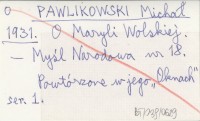 PAWLIKOWSKI Michał
1931. O Maryli Wolskiej.
— Myśl Narodowa nr 18.
Powtórzone w jego „Oknach"
ser. 1.